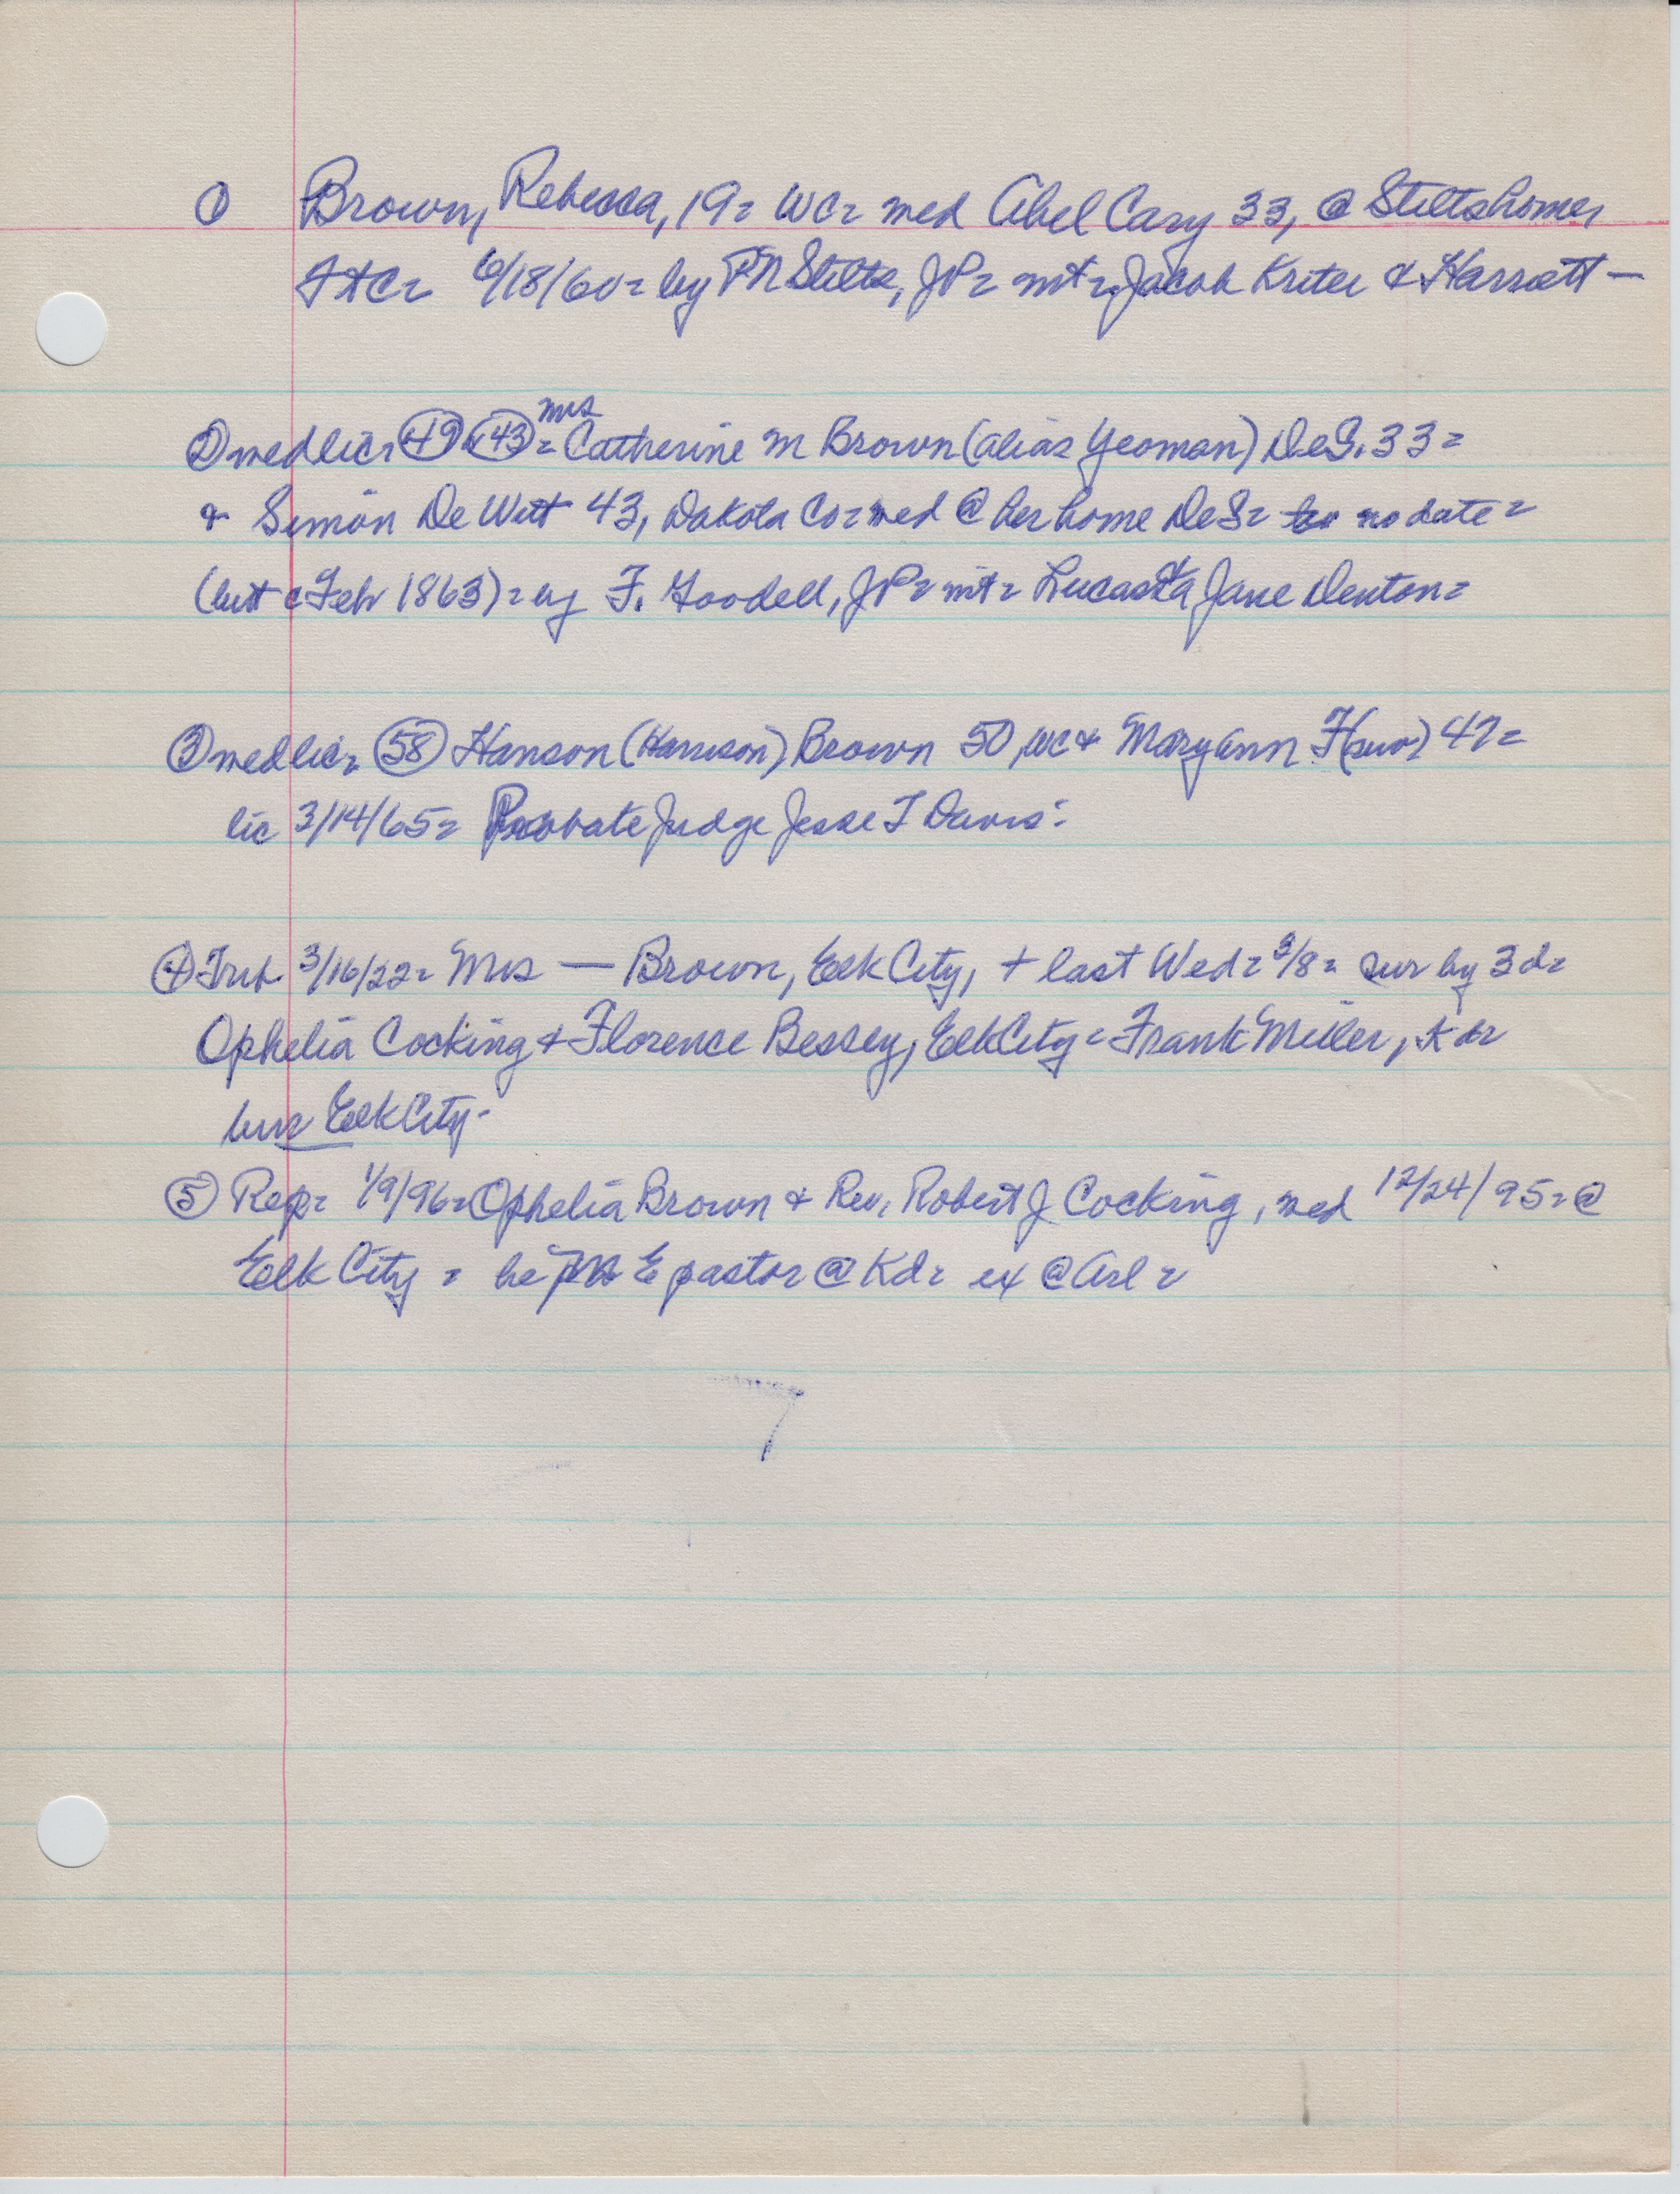 ① Brown, Rebecca, 19= WC= med Abel Cary 33, @ Stilts home,
FtC= 6/18/60= by PN Stilts, JP= wit= Jacob Kriter & Harriett —
② med lic= 49 & 43 = mrs Catherine M Brown (alias Yeoman) DeS. 33=
& Simon De Witt 43, Dakota Co= med @ her home DeS= no date=
(but c Feb 1863)= by F. Goodell, JP= wit= Lucas & Jane Denton=
③ med lic= 58 Hanson (Harrison) Brown 50, WC & Mary Ann F 47=
lic 3/14/65= Probate Judge Jesse T Davis=
④ Trib. 3/16/22= Mrs — Brown, Elk City, + last Wed= 3/8= sur by 3 d=
Ophelia Cocking & Florence Bessey, Elk City= Frank Miller, Kd=
bur= Elk City-
⑤ Rep= 1/9/96= Ophelia Brown & Rev. Robert J Cocking, med 12/24/95= @
Elk City = he E pastor @ Kd= ex @ Arl=